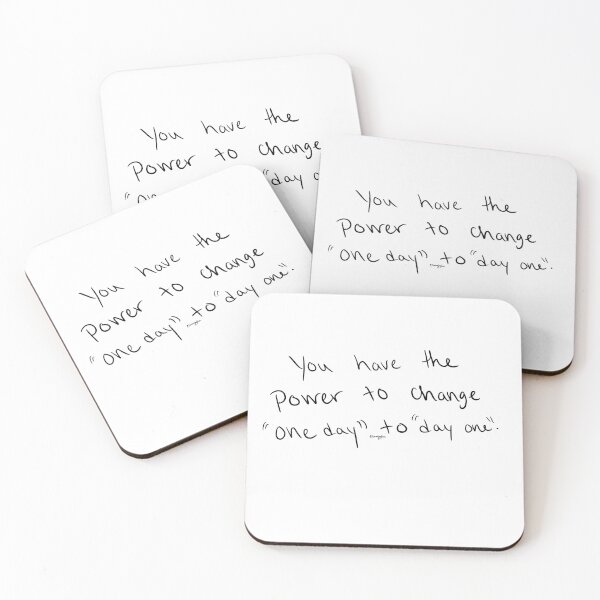 You have the
Power to change
"one da
You have the
Power to change
"one day" to "day one".
You have the
Power to change
"one day" to "day one".
You have the
Power to change
"one day" to "day one".